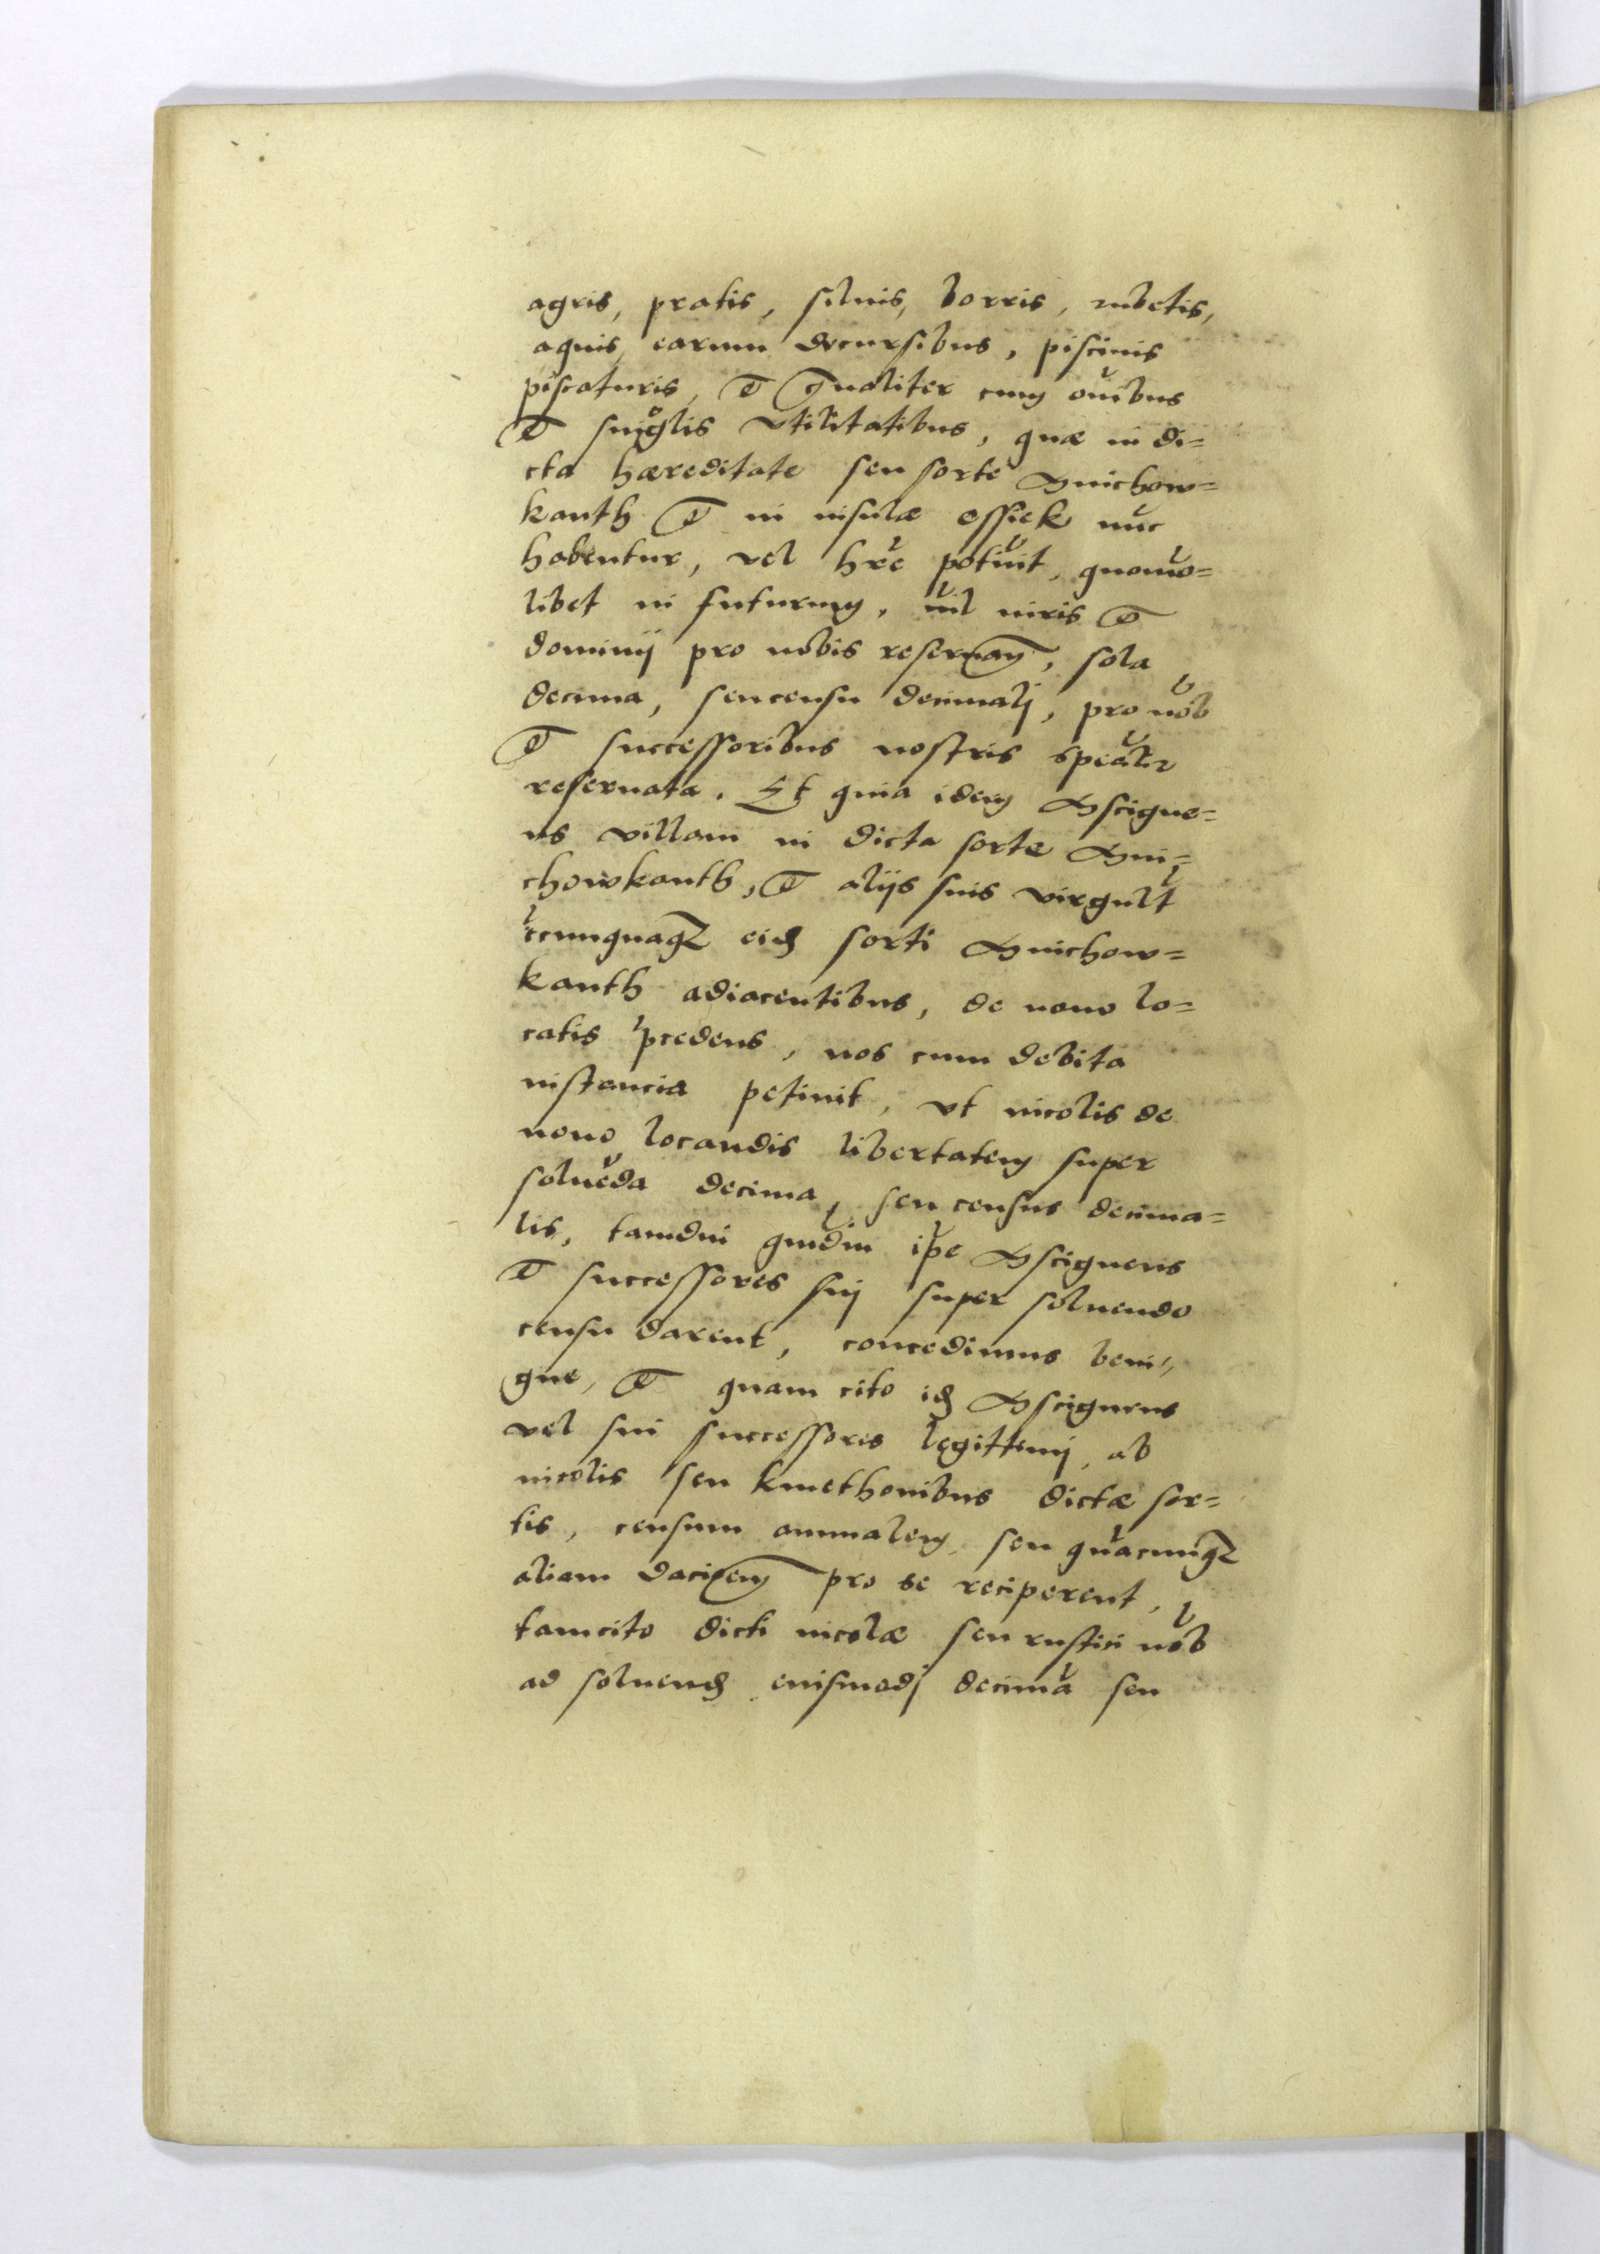 agris, pratis, siluis, borris, rubetis,
aquis, earum decursibus, piscinis
piscaturis, et gnaliter cum oibus
et singlis vtilitatibus, quæ in di=
cta hæreditate seu sorte Gnichow=
kanth et in insulæ ossiek nuc
habentur, vel hre potuit, quomo=
libet in futurum, nil iuris et
dominij pro nobis reseruan, sola
decima, seu censu decimali, pro nob
et successoribus nostris spealr
reseruata. Et quia idem Gscigne=
us villam in dicta sorte Gni=
chowkanth, et alijs suis virgult
cunquaqz eid sorti Gnichow=
kanth adiacentibus, de nouo lo=
catis credens, nos cum debita
instancia petiuit, vt incolis de
nouo locandis libertatem super
solueda decima, seu census decima=
lis, tamdiu qudiu ipe Gscigneus
et successores sui super soluendo
censu darent, concedimus beni=
gne, et quam cito id Gscigneus
vel sui successores legittimi, ab
incolis seu kmethonibus dictæ sor=
tis, censum annualem, seu quacunqz
aliam dacioem pro se reciperent,
tamcito dicti incolæ seu rustici nob
ad soluend euismodi decima seu